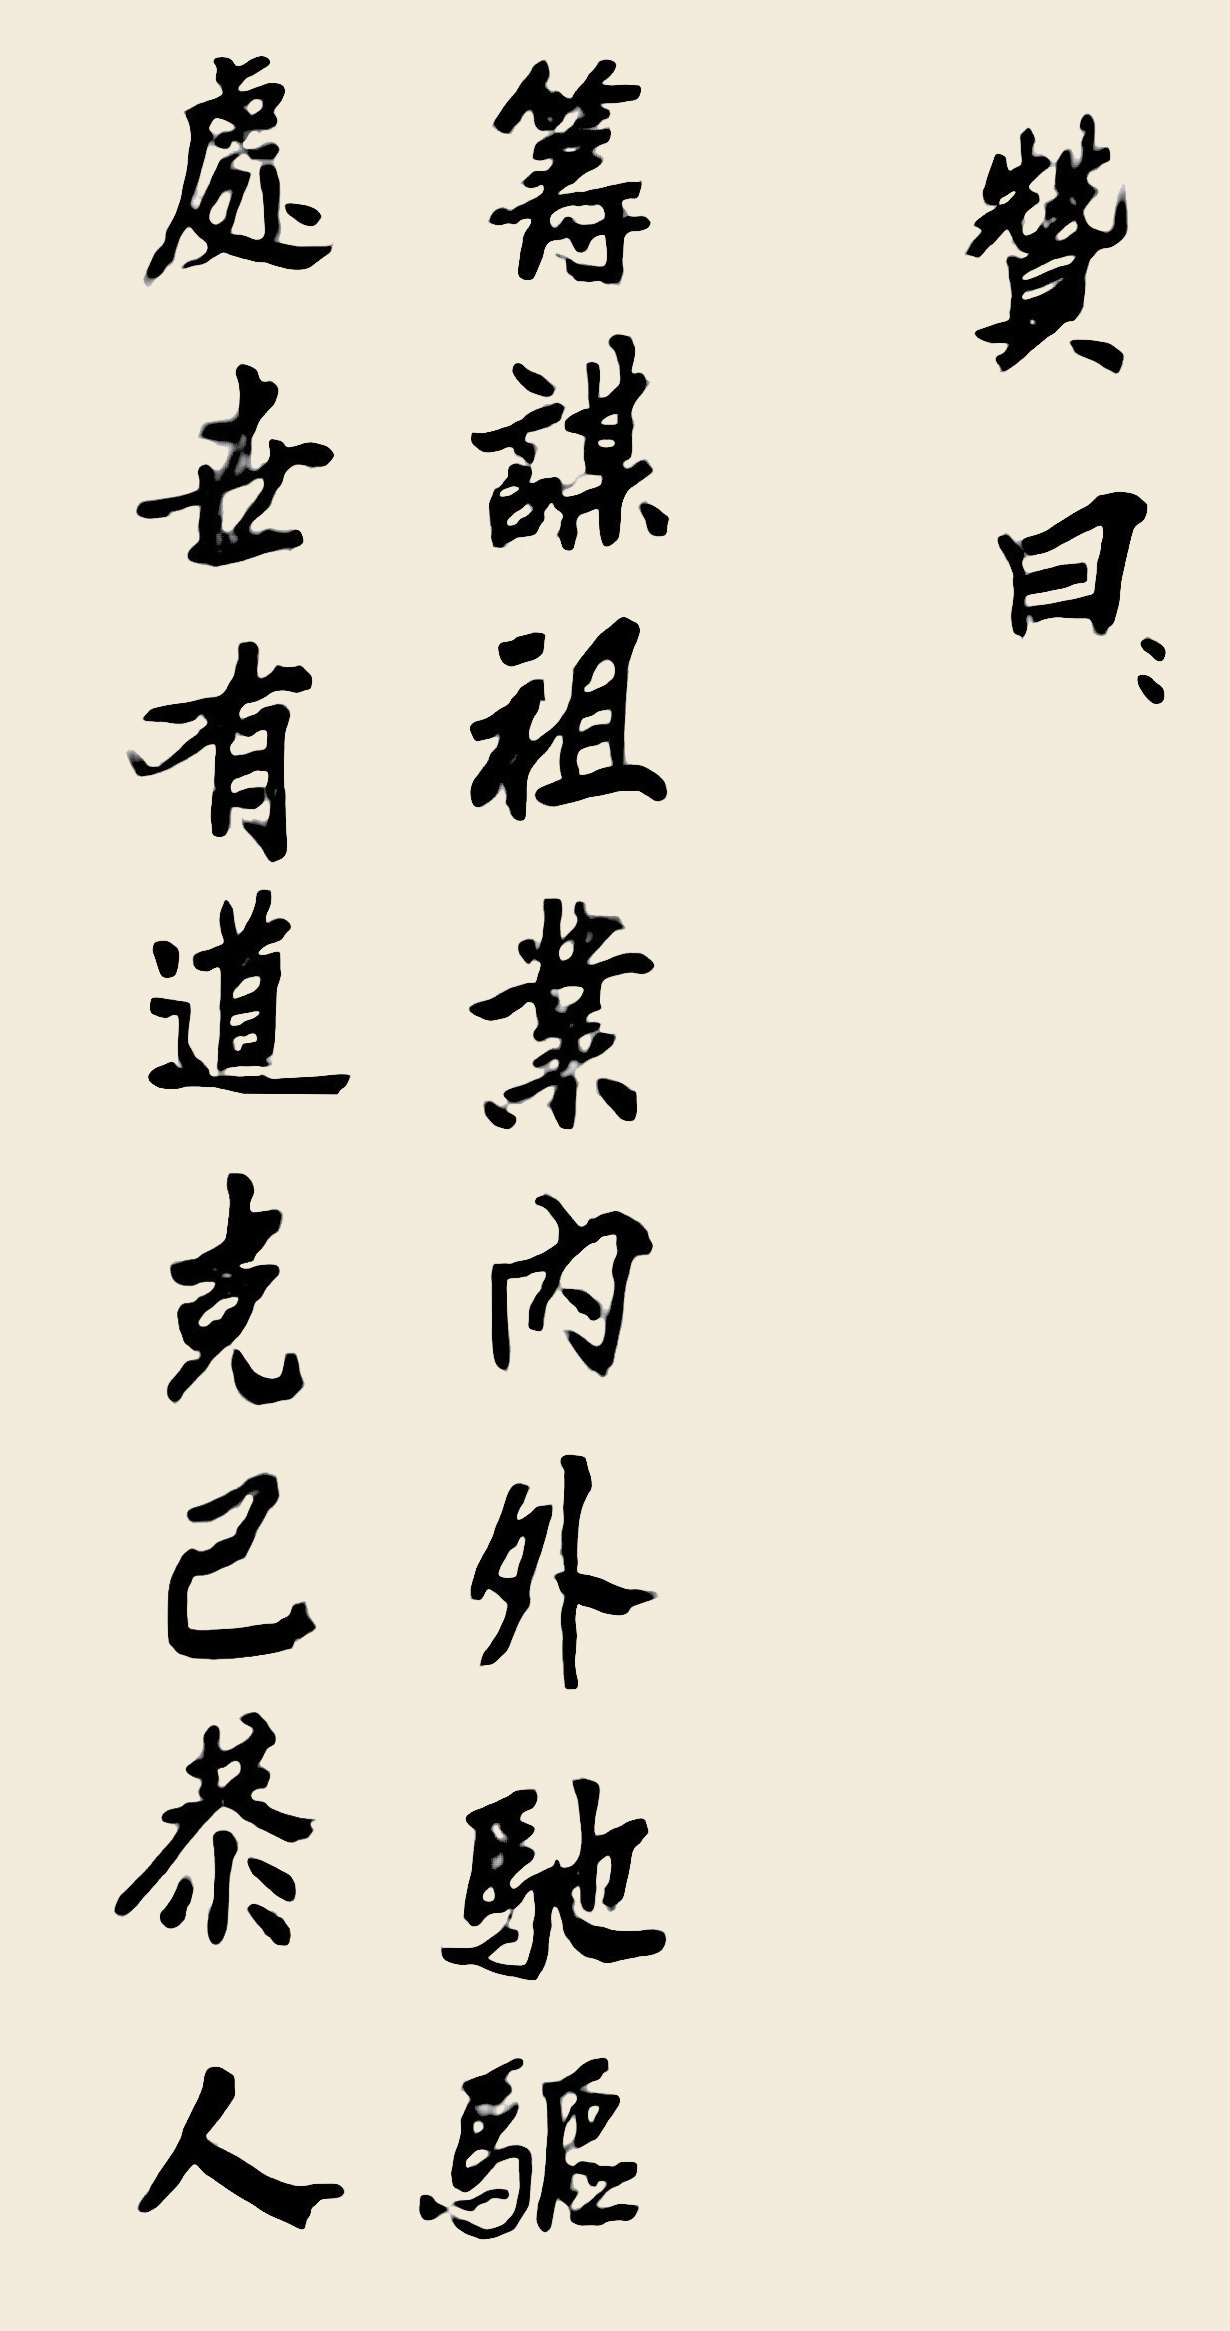 贊曰：
籌謀祖業內外馳驅
處世有道克己恭人